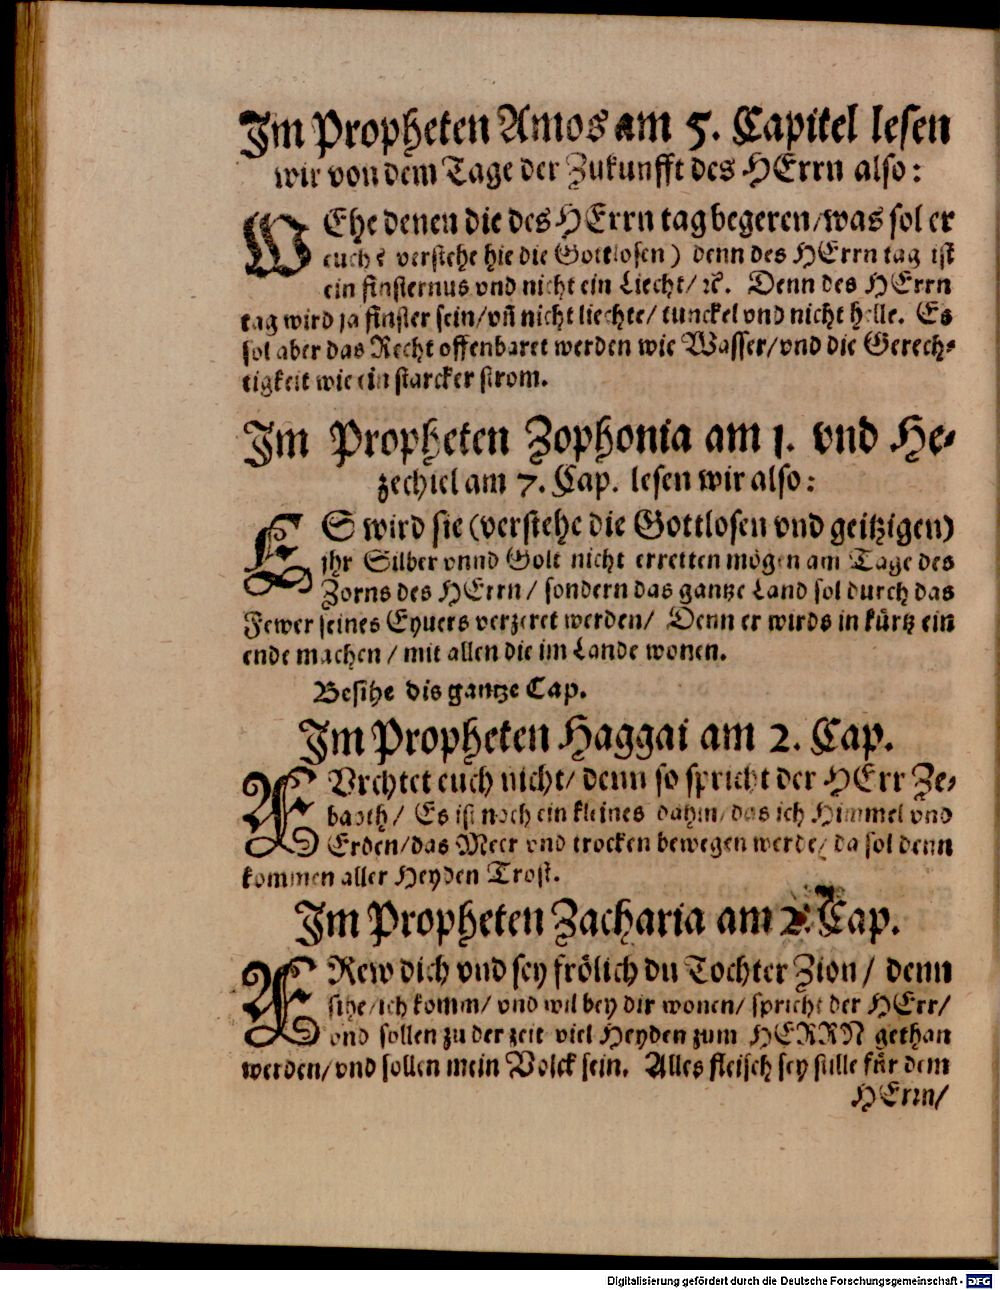 Im Propheten Amos am 5. Capitel lesen
wir von dem Tage der Zukunfft des HErrn also:
WEhe denen die des HErrn tag begeren/was sol er
euch? verstehe hie die Gottlosen) denn des HErrn tag ist
ein finsternus vnd nicht ein Liecht/ ꝛc. Denn des HErrn
tag wird ja finster sein/vñ nicht liechte/ tunckel vnd nicht helle. Es
sol aber das Recht offenbaret werden wie Wasser/vnd die Gerech-
tigkeit wie ein starcker strom.
Im Propheten Zophonia am 1. vnd He-
zechiel am 7. Cap. lesen wir also:
ES wird sie (verstehe die Gottlosen vnd geitzigen)
ihr Silber vnnd Golt nicht erretten mögen am Tage des
Zorns des HErrn/ sondern das gantze Land sol durch das
Fewer seines Eyuers verzeret werden/ Denn er wirds in kürtz ein
ende machen/ mit allen die im Lande wonen.
Besihe dis gantze Cap.
Im Propheten Haggai am 2. Cap.
FVrchtet euch nicht/ denn so spricht der HErr Ze-
baoth/ Es ist noch ein kleines dahin/das ich Himmel vnd
Erden/das Meer vnd trocken bewegen werde/ da sol denn
kommen aller Heyden Trost.
Im Propheten Zacharia am 2. Cap.
FRew dich vnd sey frölich du Tochter Zion/ denn
sihe/ich komm/ vnd wil bey dir wonen/ spricht der HErr/
vnd sollen zu der zeit viel Heyden zum HERRN gethan
werden/vnd sollen mein Volck sein. Alles fleisch sey stille für dem
HErrn/
Digitalisierung gefördert durch die Deutsche Forschungsgemeinschaft - DFG